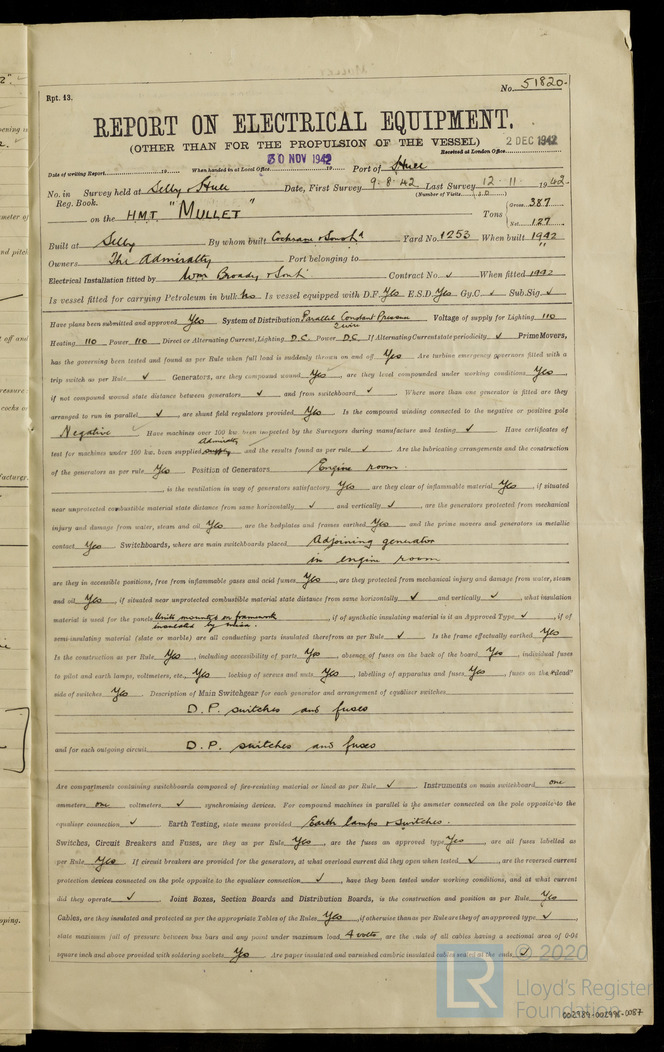 No. 51820.
Rpt. 13.
REPORT ON ELECTRICAL EQUIPMENT.
(OTHER THAN FOR THE PROPULSION OF THE VESSEL)
2 DEC 1942
Date of writing Report 19 When handed in at Local Office 30 NOV 1942 19 Port of Hull Received at London Office
No. in Survey held at Selby & Hull Date, First Survey 9.8.42 Last Survey 12.11. 1942
Reg. Book. (Number of Visits )
on the H.M.T. "MULLET" Tons Gross 387 Net 127
Built at Selby By whom built Cochrane & Sons Ld Yard No. 1253 When built 1942
Owners The Admiralty Port belonging to
Electrical Installation fitted by Wm Broady & Son Contract No. ✓ When fitted 1942
Is vessel fitted for carrying Petroleum in bulk No Is vessel equipped with D.F. Yes E.S.D. Yes Gy.C ✓ Sub.Sig. ✓
Have plans been submitted and approved Yes System of Distribution Parallel Constant Pressure 2 wire Voltage of supply for Lighting 110
Heating 110 Power 110 Direct or Alternating Current, Lighting D.C. Power D.C. If Alternating Current state periodicity ✓ Prime Movers,
has the governing been tested and found as per Rule when full load is suddenly thrown on and off Yes Are turbine emergency governors fitted with a
trip switch as per Rule ✓ Generators, are they compound wound Yes, are they level compounded under working conditions Yes,
if not compound wound state distance between generators ✓ and from switchboard ✓. Where more than one generator is fitted are they
arranged to run in parallel ✓, are shunt field regulators provided Yes. Is the compound winding connected to the negative or positive pole
Negative Have machines over 100 kw. been inspected by the Surveyors during manufacture and testing ✓. Have certificates of
test for machines under 100 kw. been supplied Admiralty supply and the results found as per rule ✓ Are the lubricating arrangements and the construction
of the generators as per rule Yes Position of Generators Engine room.
, is the ventilation in way of generators satisfactory Yes are they clear of inflammable material Yes, if situated
near unprotected combustible material state distance from same horizontally ✓ and vertically ✓, are the generators protected from mechanical
injury and damage from water, steam and oil Yes, are the bedplates and frames earthed Yes and the prime movers and generators in metallic
contact Yes Switchboards, where are main switchboards placed Adjoining generator
in engine room
are they in accessible positions, free from inflammable gases and acid fumes Yes, are they protected from mechanical injury and damage from water, steam
and oil Yes, if situated near unprotected combustible material state distance from same horizontally ✓ and vertically ✓, what insulation
material is used for the panels Units mounted on framework insulated by mica., if of synthetic insulating material is it an Approved Type ✓, if of
semi-insulating material (slate or marble) are all conducting parts insulated therefrom as per Rule ✓ Is the frame effectually earthed Yes
Is the construction as per Rule Yes, including accessibility of parts Yes, absence of fuses on the back of the board Yes, individual fuses
to pilot and earth lamps, voltmeters, etc., Yes locking of screws and nuts Yes, labelling of apparatus and fuses Yes, fuses on the "dead"
side of switches Yes. Description of Main Switchgear for each generator and arrangement of equaliser switches
D.P. switches and fuses
and for each outgoing circuit D.P. switches and fuses
Are compartments containing switchboards composed of fire-resisting material or lined as per Rule ✓ Instruments on main switchboard one
ammeters one voltmeters ✓ synchronising devices. For compound machines in parallel is the ammeter connected on the pole opposite to the
equaliser connection ✓. Earth Testing, state means provided Earth lamps & switches.
Switches, Circuit Breakers and Fuses, are they as per Rule Yes, are the fuses an approved type Yes, are all fuses labelled as
per Rule Yes If circuit breakers are provided for the generators, at what overload current did they open when tested ✓, are the reversed current
protection devices connected on the pole opposite to the equaliser connection ✓, have they been tested under working conditions, and at what current
did they operate ✓. Joint Boxes, Section Boards and Distribution Boards, is the construction and position as per Rule Yes
Cables, are they insulated and protected as per the appropriate Tables of the Rules Yes, if otherwise than as per Rule are they of an approved type ✓,
state maximum fall of pressure between bus bars and any point under maximum load 4 volts, are the ends of all cables having a sectional area of 0·04
square inch and above provided with soldering sockets Yes Are paper insulated and varnished cambric insulated cables sealed at the ends ✓
© 2020
LR
Lloyd's Register
Foundation
002984-002996-0087